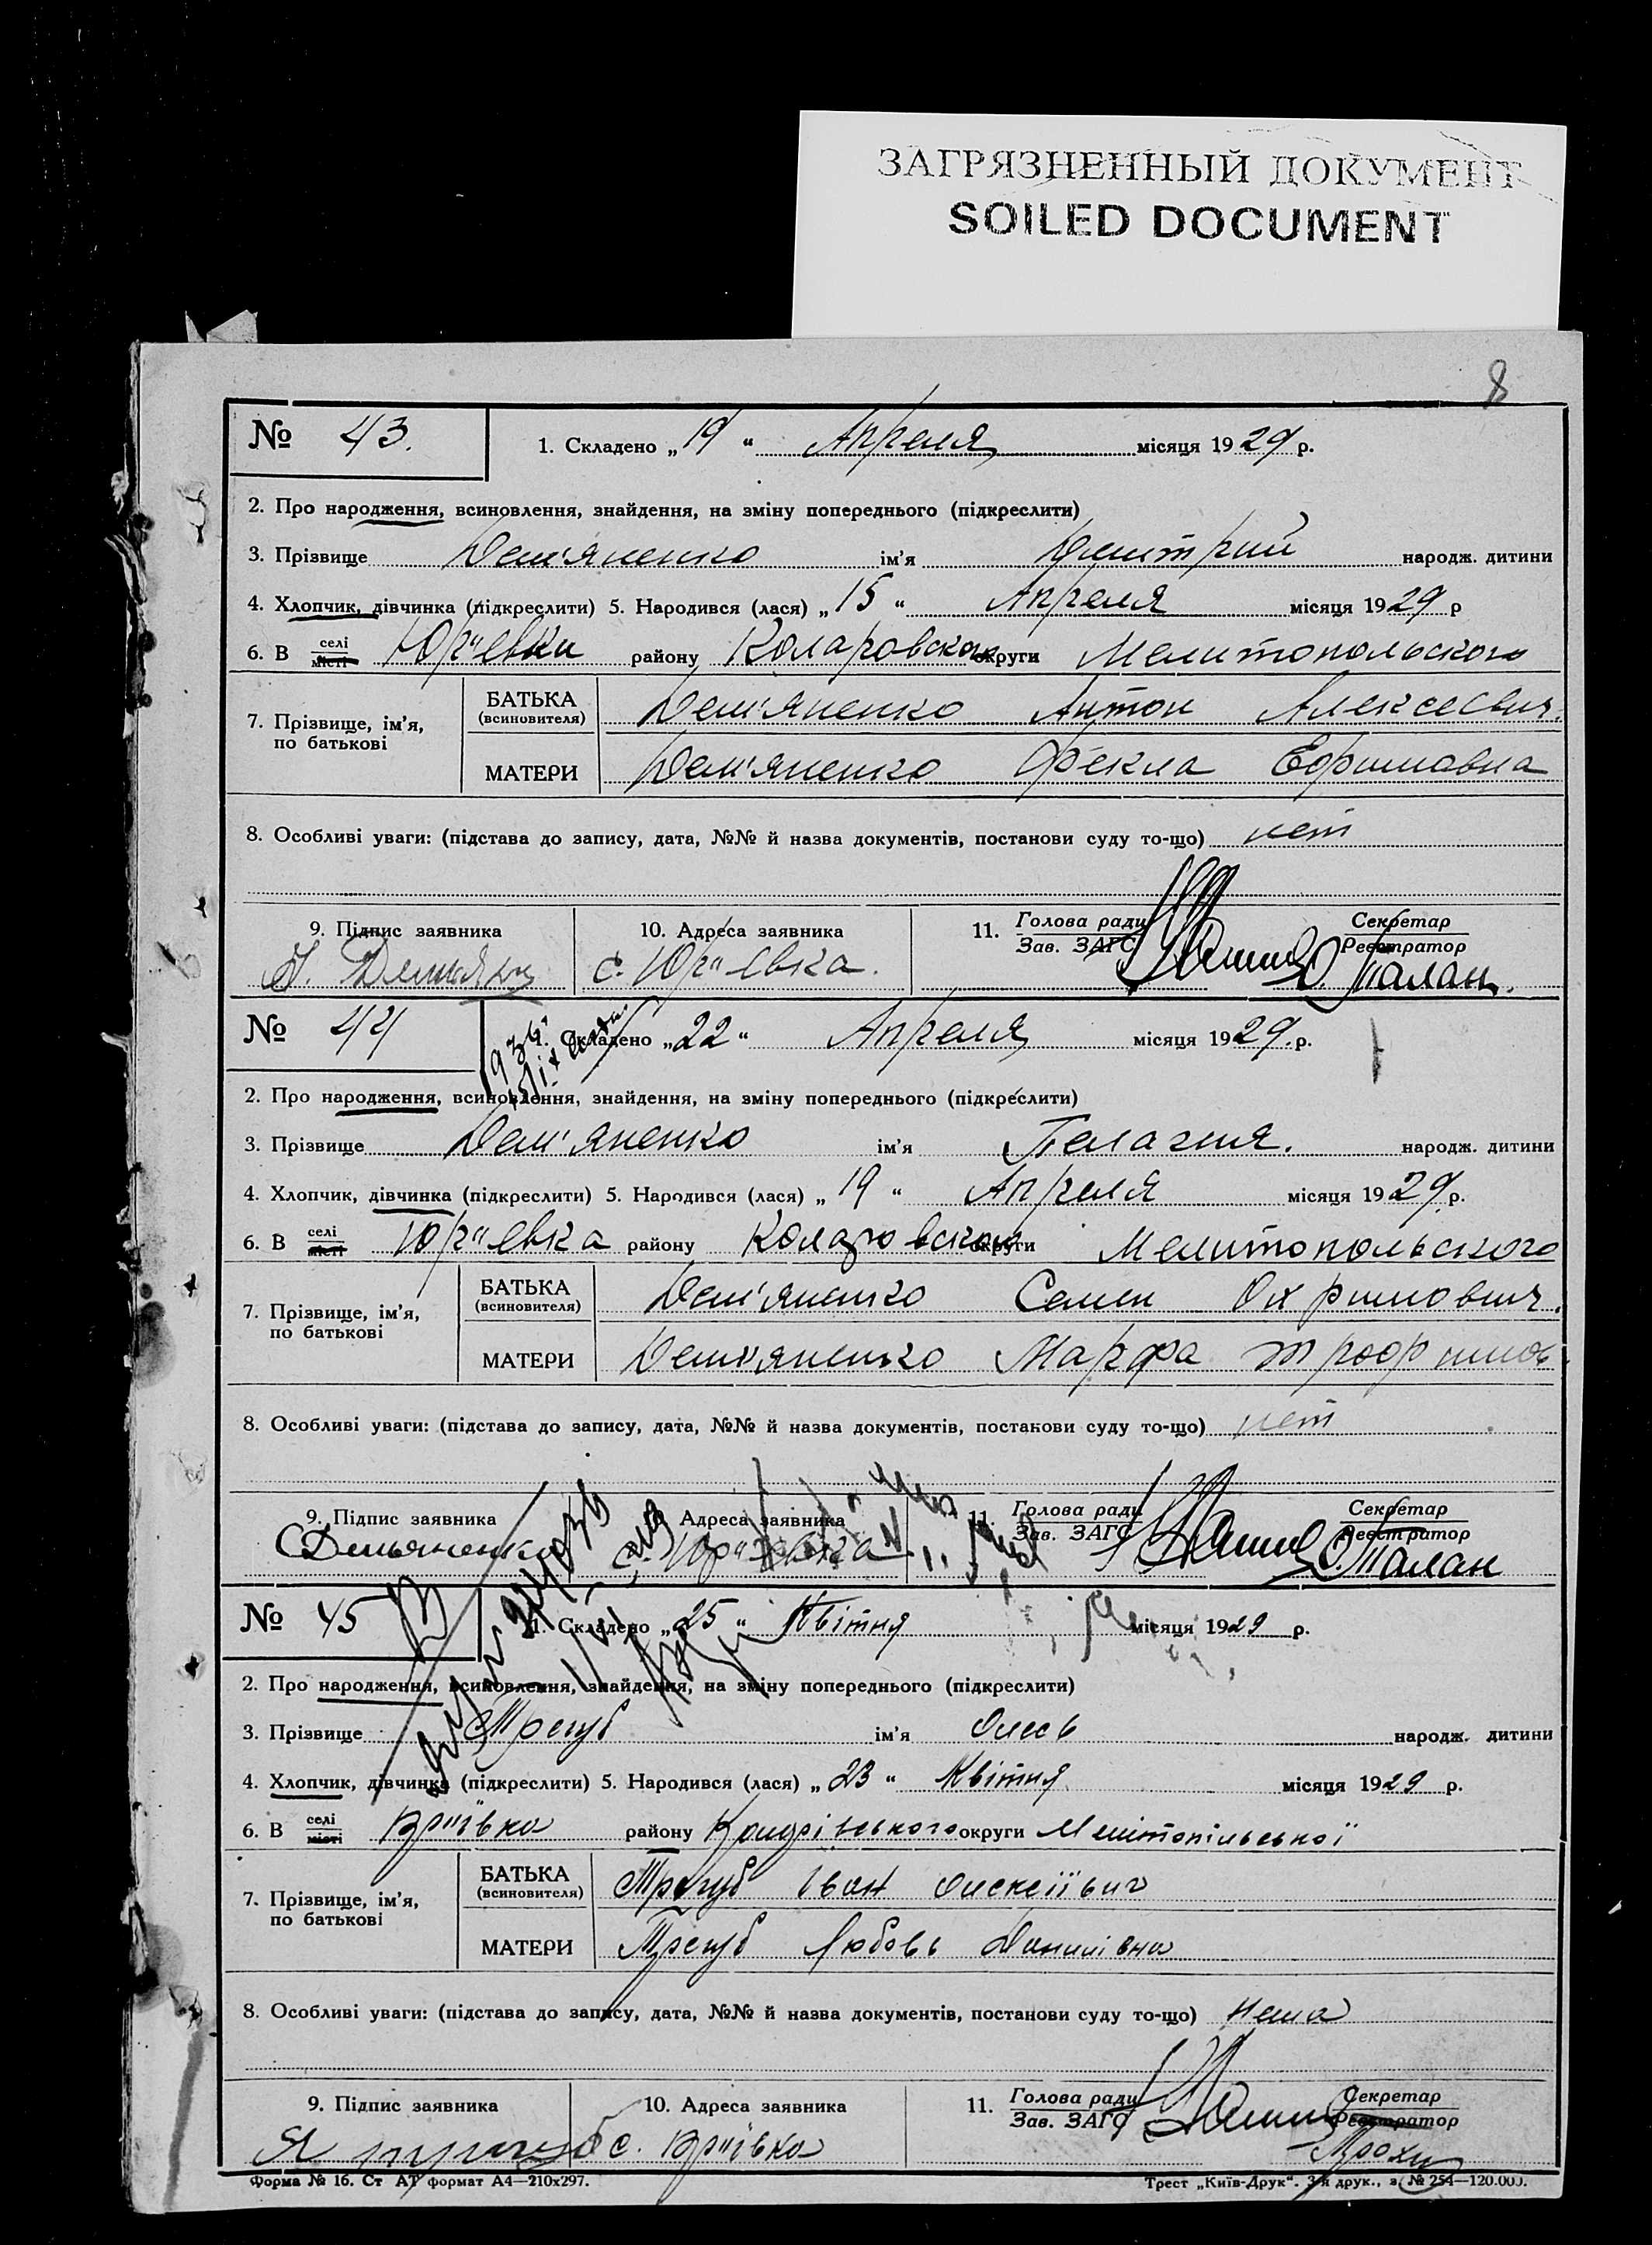 ЗАГРЯЗНЕННЫЙ ДОКУМЕНТ
SOILED DOCUMENT
8
№ 43. 1. Складено „19“ Апреля місяця 1929 р.
2. Про народження, всиновлення, знайдення, на зміну попереднього (підкреслити)
3. Прізвище Дем'яненко ім'я Дмитрий народж. дитини
4. Хлопчик, дівчинка (підкреслити) 5. Народився (лася) „15“ Апреля місяця 1929 р
6. В селі місті Юр"евки району Коларовского округи Мелитопольского
7. Прізвище, ім'я, по батькові
БАТЬКА (всиновителя) Дем'яненко Антон Алексеевич.
МАТЕРИ Дем'яненко Фекла Ефимовна
8. Особливі уваги: (підстава до запису, дата, №№ й назва документів, постанови суду то-що) нет
9. Підпис заявника 10. Адреса заявника 11. Голова ради Зав. ЗАГС Секретар Реєстратор
с. Юр"евка. Талан.
№ 44 1. Складено „22“ Апреля місяця 1929. р.
2. Про народження, всиновлення, знайдення, на зміну попереднього (підкреслити)
3. Прізвище Дем'яненко ім'я Пелагия. народж. дитини
4. Хлопчик, дівчинка (підкреслити) 5. Народився (лася) „19“ Апреля місяця 1929 р.
6. В селі місті Юр"евка району Коларовского округи Мелитопольского
7. Прізвище, ім'я, по батькові
БАТЬКА (всиновителя) Дем'яненко Семен Охримович.
МАТЕРИ Дем'яненко Марфа Трофимов
8. Особливі уваги: (підстава до запису, дата, №№ й назва документів, постанови суду то-що) нет
9. Підпис заявника Адреса заявника 11. Голова ради Зав. ЗАГС Секретар Реєстратор
С Демьяненко с. Юр"евка Талан
№ 45 1. Складено „25“ Квітня місяця 1929 р.
2. Про народження, всиновлення, знайдення, на зміну попереднього (підкреслити)
3. Прізвище Трегуб ім'я Олесь народж. дитини
4. Хлопчик, дівчинка (підкреслити) 5. Народився (лася) „23“ Квітня місяця 1929 р.
6. В селі місті району округи Мелітопільської
7. Прізвище, ім'я, по батькові
БАТЬКА (всиновителя) Трегуб Іван Олексіївич
МАТЕРИ Трегуб Любовь Данилівна
8. Особливі уваги: (підстава до запису, дата, №№ й назва документів, постанови суду то-що) нема
9. Підпис заявника 10. Адреса заявника 11. Голова ради Зав. ЗАГС Секретар Реєстратор
Форма № 16. Ст АТ формат А4—210х297. Трест „Київ-Друк“. 3-я друк., з. № 254—120.000.